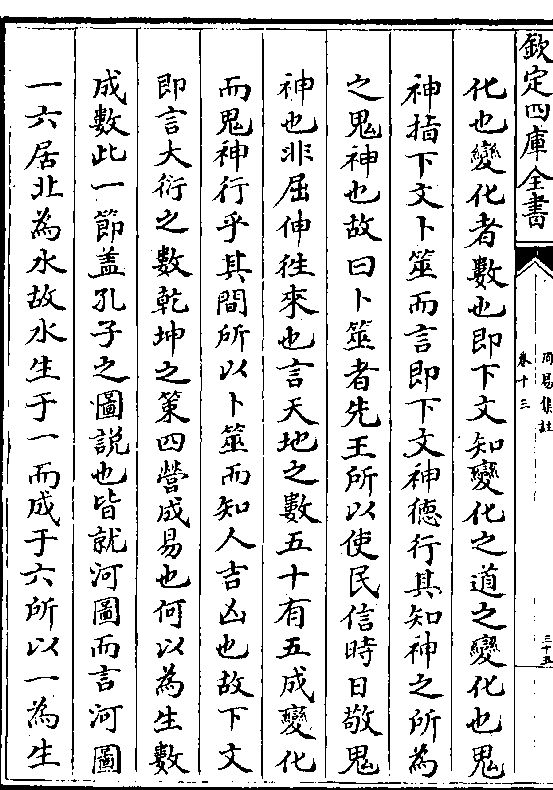 欽定四庫全書
周易集註
卷十三
三十五
化也變化者數也即下文知變化之道之變化也鬼
神指下文卜筮而言即下文神德行其知神之所為
之鬼神也故曰卜筮者先王所以使民信時日敬鬼
神也非屈伸徃來也言天地之數五十有五成變化
而鬼神行乎其間所以卜筮而知人吉凶也故下文
即言大衍之數乾坤之策四營成易也何以為生數
成數此一節盖孔子之圖說也皆就河圖而言河圖
一六居北為水故水生于一而成于六所以一為生